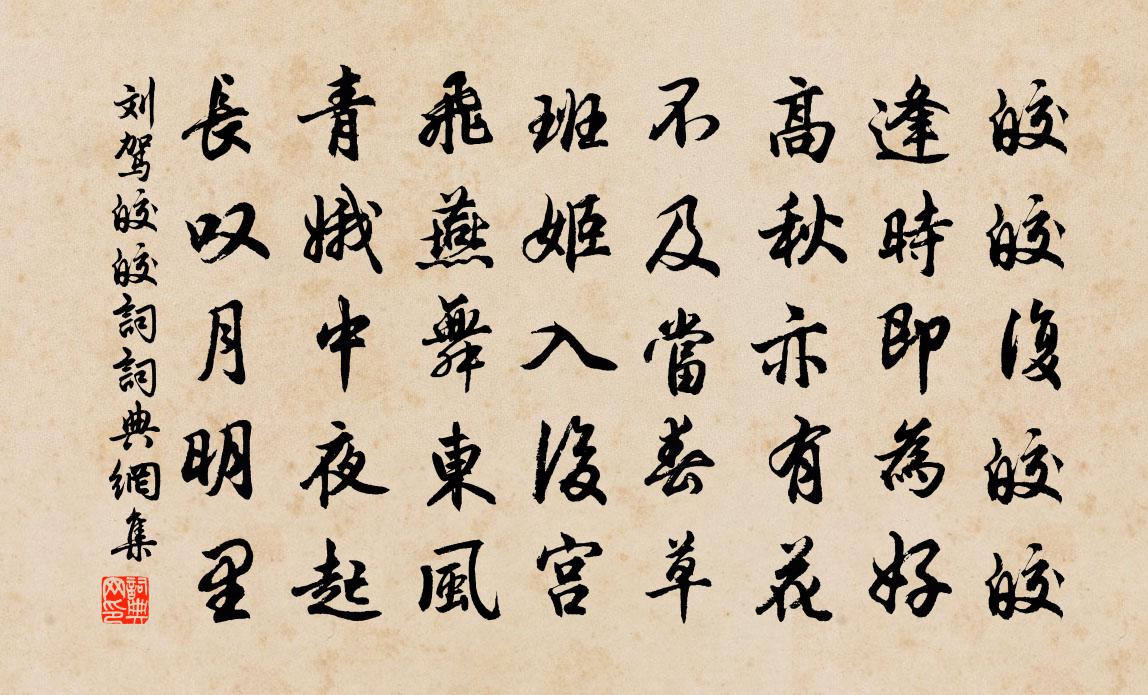 皎皎復皎皎
逢時即為好
高秋亦有花
不及當春草
班姬入後宮
飛燕舞東風
青娥中夜起
長叹月明里
刘駕皎皎詞詞典網集
詞典网印